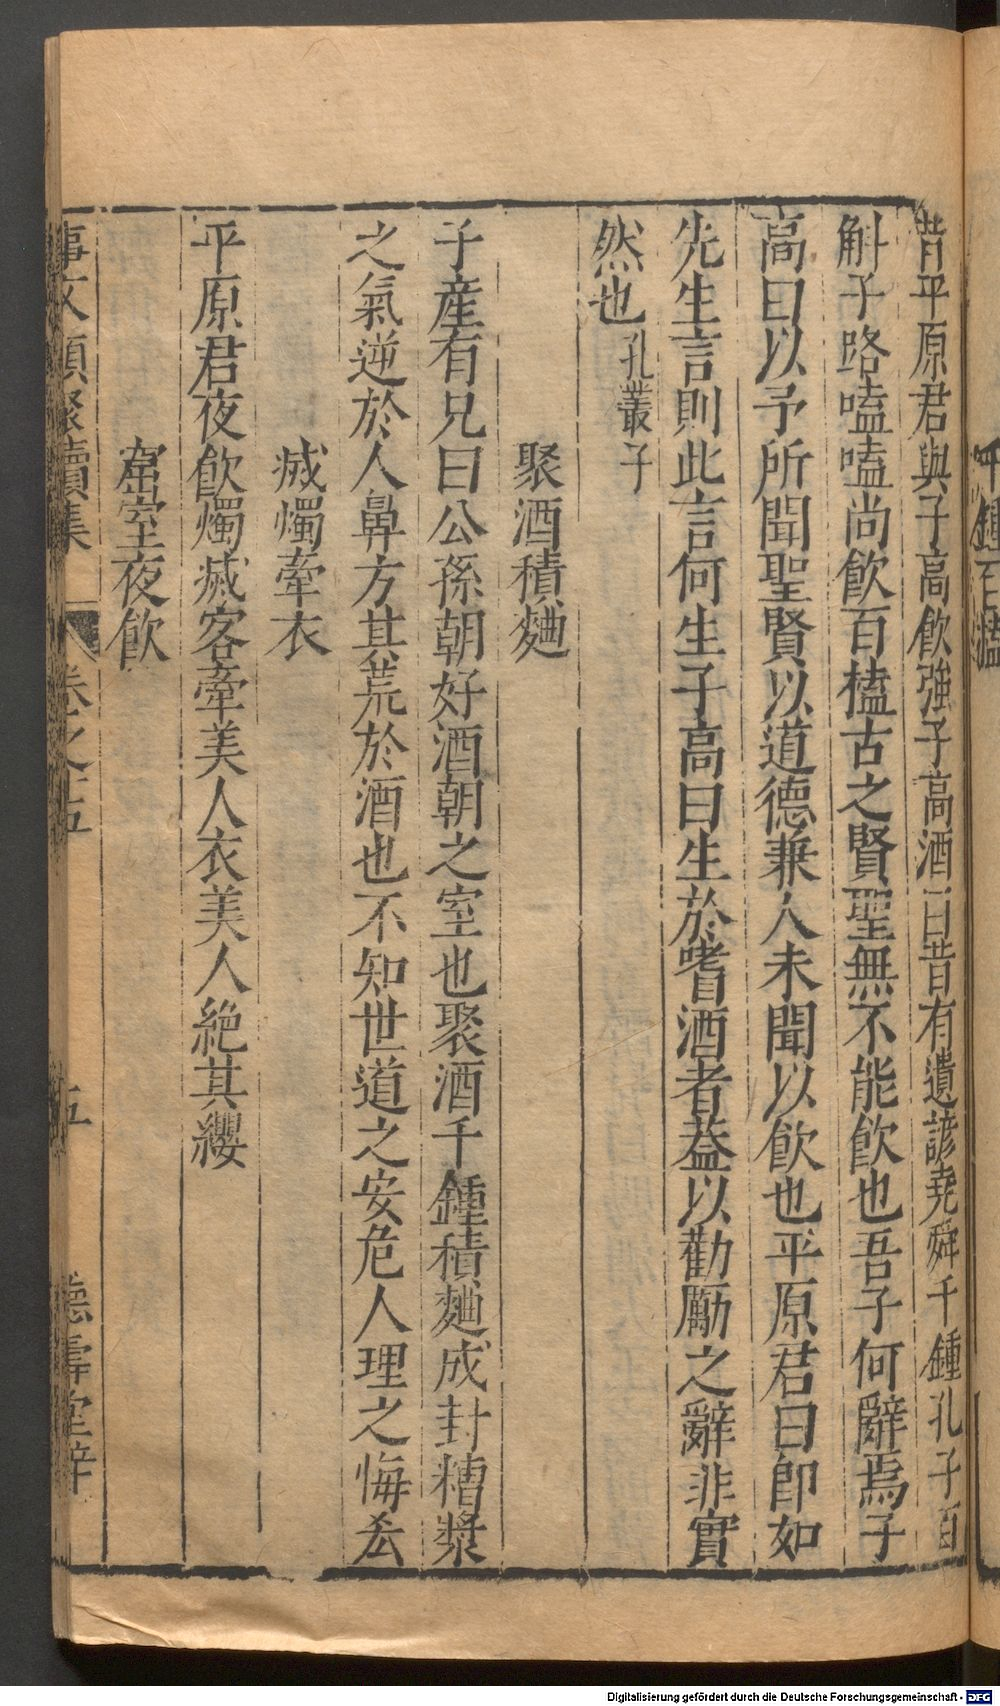 千鍾百榼
昔平原君與子高飲強子高酒曰昔有遺諺堯舜千鍾孔子百
斛子路嗑嗑尚飲百榼古之賢聖無不能飲也吾子何辭焉子
高曰以予所聞聖賢以道德兼人未聞以飲也平原君曰即如
先生言則此言何生子高曰生於嗜酒者葢以勸厲之辭非實
然也孔叢子
聚酒積麯
子產有兄曰公孫朝好酒朝之室也聚酒千鍾積麯成封糟漿
之氣逆於人鼻方其荒於酒也不知世道之安危人理之悔厺
烕燭牽衣
平原君夜飲燭烕客牽美人衣美人絕其纓
窟室夜飲
事文類聚續集 卷之十五 五 德壽堂梓
Digitalisierung gefördert durch die Deutsche Forschungsgemeinschaft - DFG